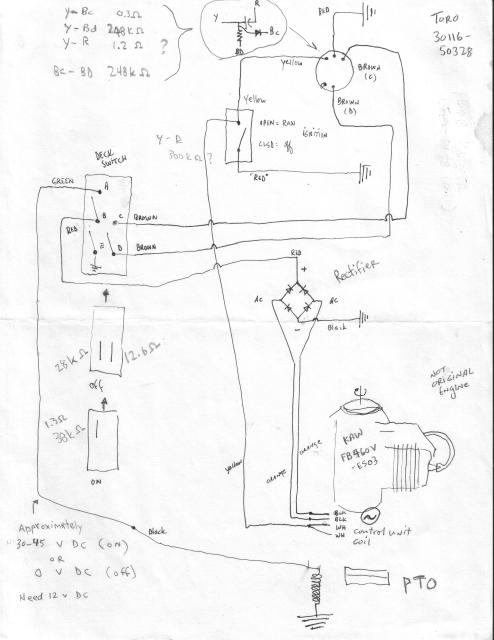 Y-Bc 0.3Ω
Y-Bd 248kΩ
Y-R 1.2Ω ?
Bc-BD 248kΩ
Y
R
Bc
BD
RED
TORO
30116-
50328
Yellow
BROWN
(C)
BROWN
(D)
Yellow
OPEN = RUN
ignition
CLSD = off
Y-R
300kΩ?
"RED"
DECK
SWITCH
GREEN
A
B
C
BROWN
RED
E
D
BROWN
RED
+
Rectifier
AC
AC
-
Black
28kΩ
12.6Ω
OFF
1.3Ω
38kΩ
ON
NOT
ORIGINAL
Engine
KAW
FB460V
-ES03
yellow
orange
orange
BLK
BLK
WH
WH
control unit
coil
Approximately
30-45 V DC (ON)
OR
0 V DC (off)
Need 12 V DC
black
PTO